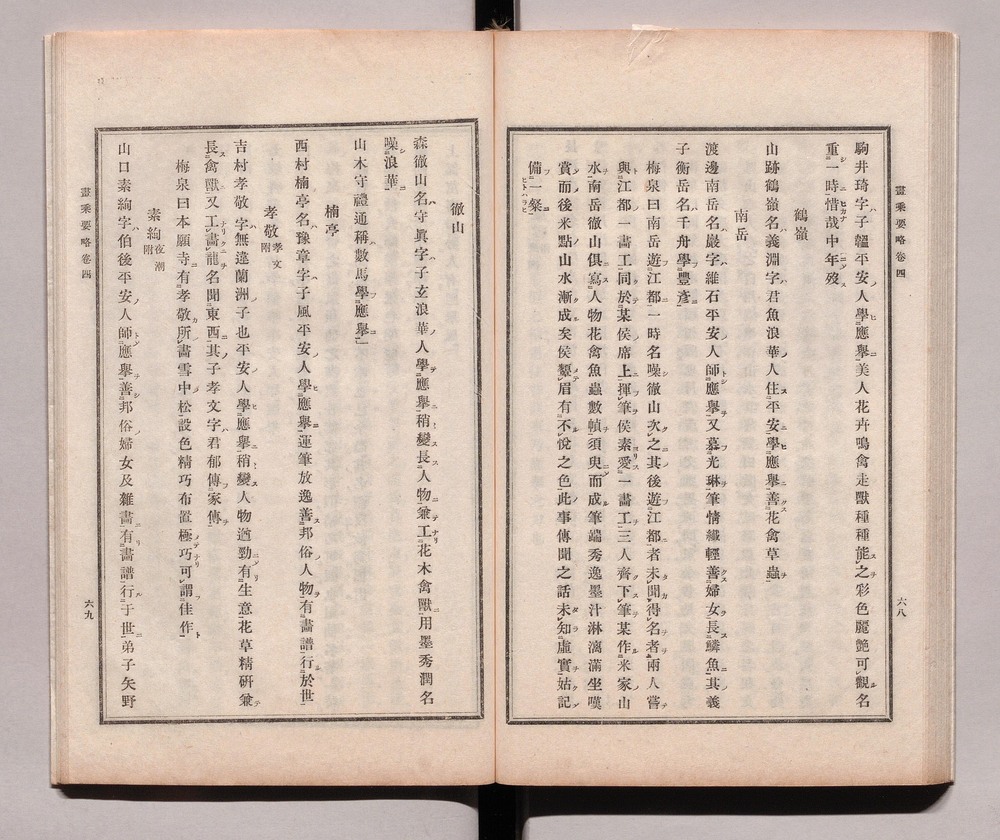 畫乘要略卷四
六八
駒井琦字子韞平安人學應擧美人花卉鳴禽走獸種種能之彩色麗艶可觀名
重一時惜哉中年歿
鶴嶺
山跡鶴嶺名義淵字君魚浪華人住平安學應擧善花禽草蟲
南岳
渡邊南岳名巖字維石平安人師應擧又慕光琳筆情纖輕善婦女長鱗魚其義
子衡岳名千舟學豐彥
梅泉曰南岳遊江都一時名噪徹山次之其後遊江都者未聞得名者兩人嘗
與江都一畫工同於某侯席上揮筆侯素愛一畫工三人齊下筆某作米家山
水南岳徹山俱寫人物花禽魚蟲數幀須臾而成筆端秀逸墨汁淋漓滿坐嘆
賞而後米點山水漸成矣侯顰眉有不悅之色此事傳聞之話未知虛實姑記
備一粲
徹山
森徹山名守眞字子玄浪華人學應擧稍變長人物兼工花木禽獸用墨秀潤名
噪浪華
山木守禮通稱數馬學應擧
楠亭
西村楠亭名豫章字子風平安人學應擧運筆放逸善邦俗人物有畫譜行於世
孝敬 孝文附
吉村孝敬字無違蘭洲子也平安人學應擧稍變人物遒勁有生意花草精硏兼
長禽獸又工畫龍名聞東西其子孝文字君郁傳家傳
梅泉曰本願寺有孝敬所畫雪中松設色精巧布置極巧可謂佳作
素絢 夜潮附
山口素絢字伯後平安人師應擧善邦俗婦女及雜畫有畫譜行于世弟子矢野
畫乘要略卷四
六九